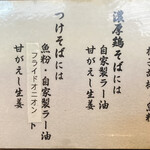 濃厚鶏そばには
自家製ラー油
甘がえし生姜
つけそばには
魚粉・自家製ラー油
フライドオニオン
甘がえし生姜